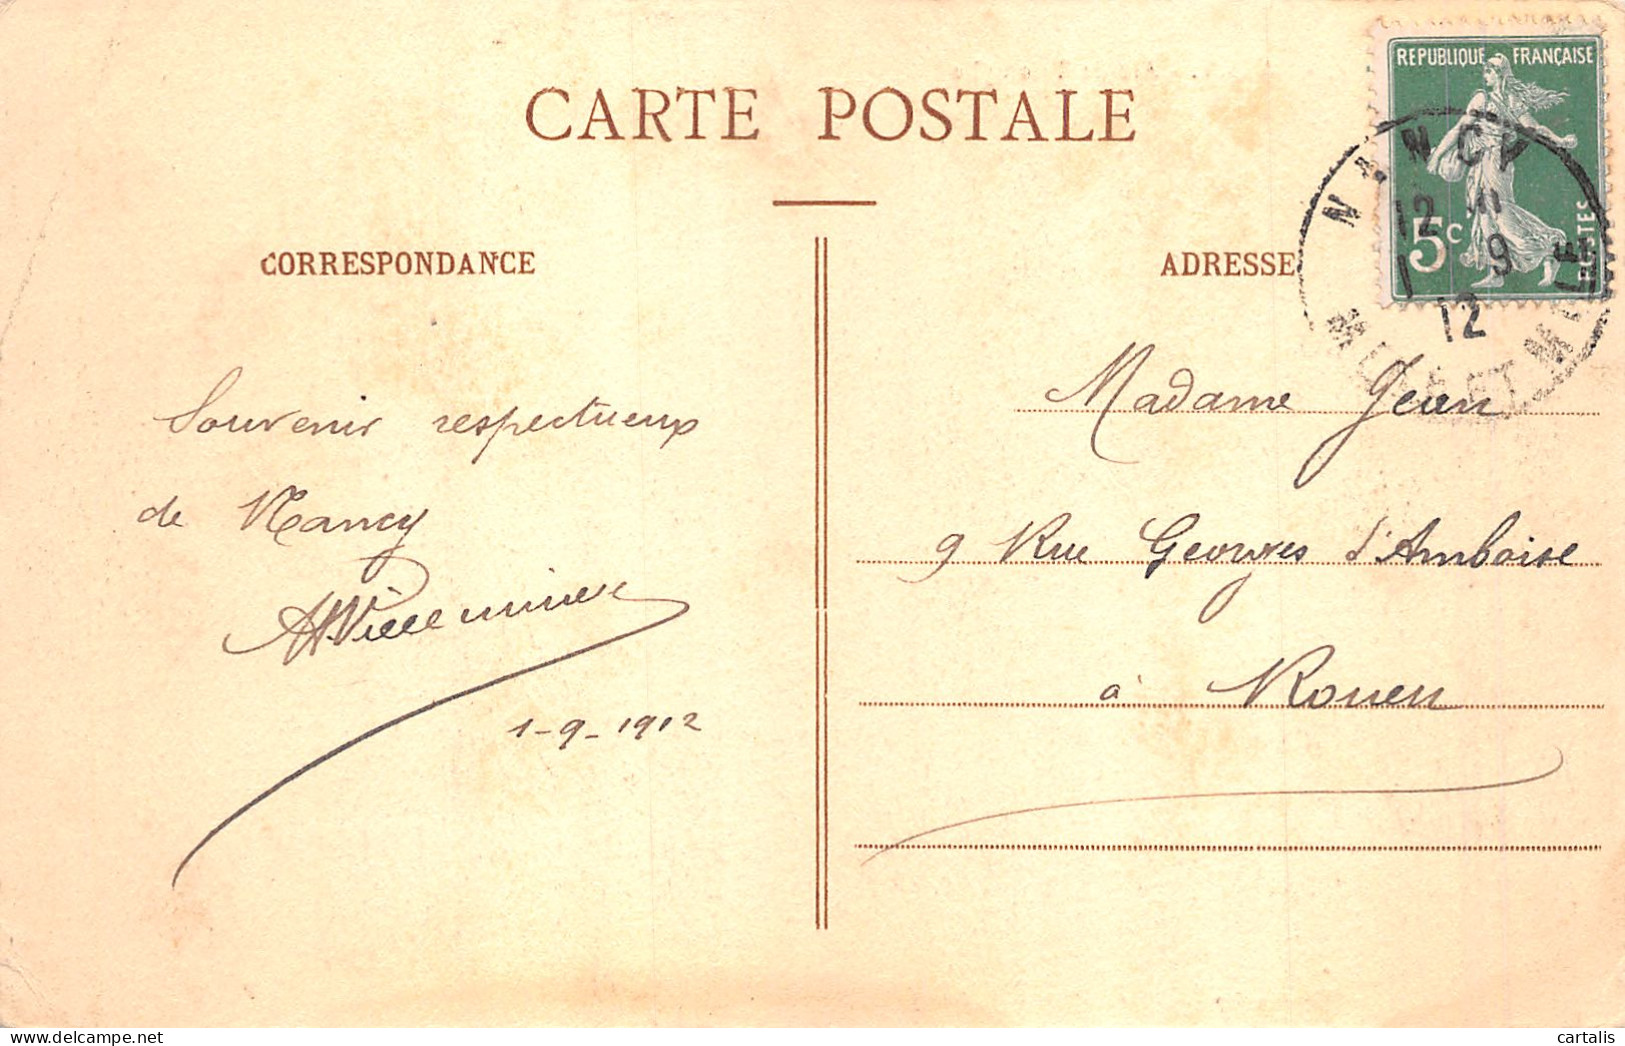 CARTE POSTALE
CORRESPONDANCE
Souvenir respectueux
de Nancy
1-9-1912
ADRESSE
REPUBLIQUE FRANÇAISE
5c
POSTES
NANCY
12
1 9
12
MEURTHE ET MLLE
Madame Jean
9 Rue Georges d'Amboise
à Rouen
cartalis
delcampe.net